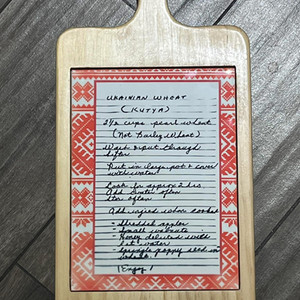 UKRAINIAN WHEAT
(KUTYA)
2 1/2 cups pearl wheat
(Not Barley Wheat)
Wash & put through
sifter
Put in large pot & cover
with water
Cook for approx 2 hrs.
Add water often
stir often
Add varied when cooked
- Shredded apples
- Small walnuts
- Honey diluted with
hot water
- sprinkle poppy seed in
Enjoy!